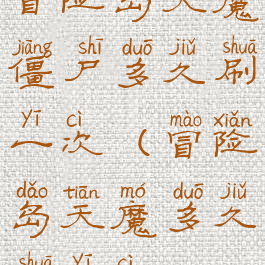 冒险岛天魔
jiāng shī duō jiǔ shuā
僵尸多久刷
yī cì mào xiǎn
一次（冒险
dǎo tiān mó duō jiǔ
岛天魔多久
shuā yī cì